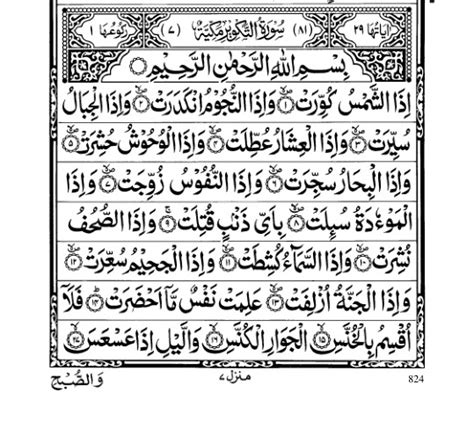 اٰیَاتُهَا ۲۹ (۸۱) سُوْرَةُ التَّكْوِیْرِ مَكِّیَّةٌ (۷) رُكُوْعُهَا ۱
بِسْمِ اللّٰهِ الرَّحْمٰنِ الرَّحِیْمِ
اِذَا الشَّمْسُ كُوِّرَتْ ۱ وَاِذَا النُّجُوْمُ انْكَدَرَتْ ۲ وَاِذَا الْجِبَالُ
سُیِّرَتْ ۳ وَاِذَا الْعِشَارُ عُطِّلَتْ ۴ وَاِذَا الْوُحُوْشُ حُشِرَتْ ۵
وَاِذَا الْبِحَارُ سُجِّرَتْ ۶ وَاِذَا النُّفُوْسُ زُوِّجَتْ ۷ وَاِذَا
الْمَوْءٗدَةُ سُىِٕلَتْ ۸ بِاَیِّ ذَنْۢبٍ قُتِلَتْ ۹ وَاِذَا الصُّحُفُ
نُشِرَتْ ۱۰ وَاِذَا السَّمَآءُ كُشِطَتْ ۱۱ وَاِذَا الْجَحِیْمُ سُعِّرَتْ ۱۲
وَاِذَا الْجَنَّةُ اُزْلِفَتْ ۱۳ عَلِمَتْ نَفْسٌ مَّاۤ اَحْضَرَتْ ۱۴ فَلَاۤ
اُقْسِمُ بِالْخُنَّسِ ۱۵ الْجَوَارِ الْكُنَّسِ ۱۶ وَالَّیْلِ اِذَا عَسْعَسَ ۱۷
وَالصُّبْحِ منزل ۷ 824